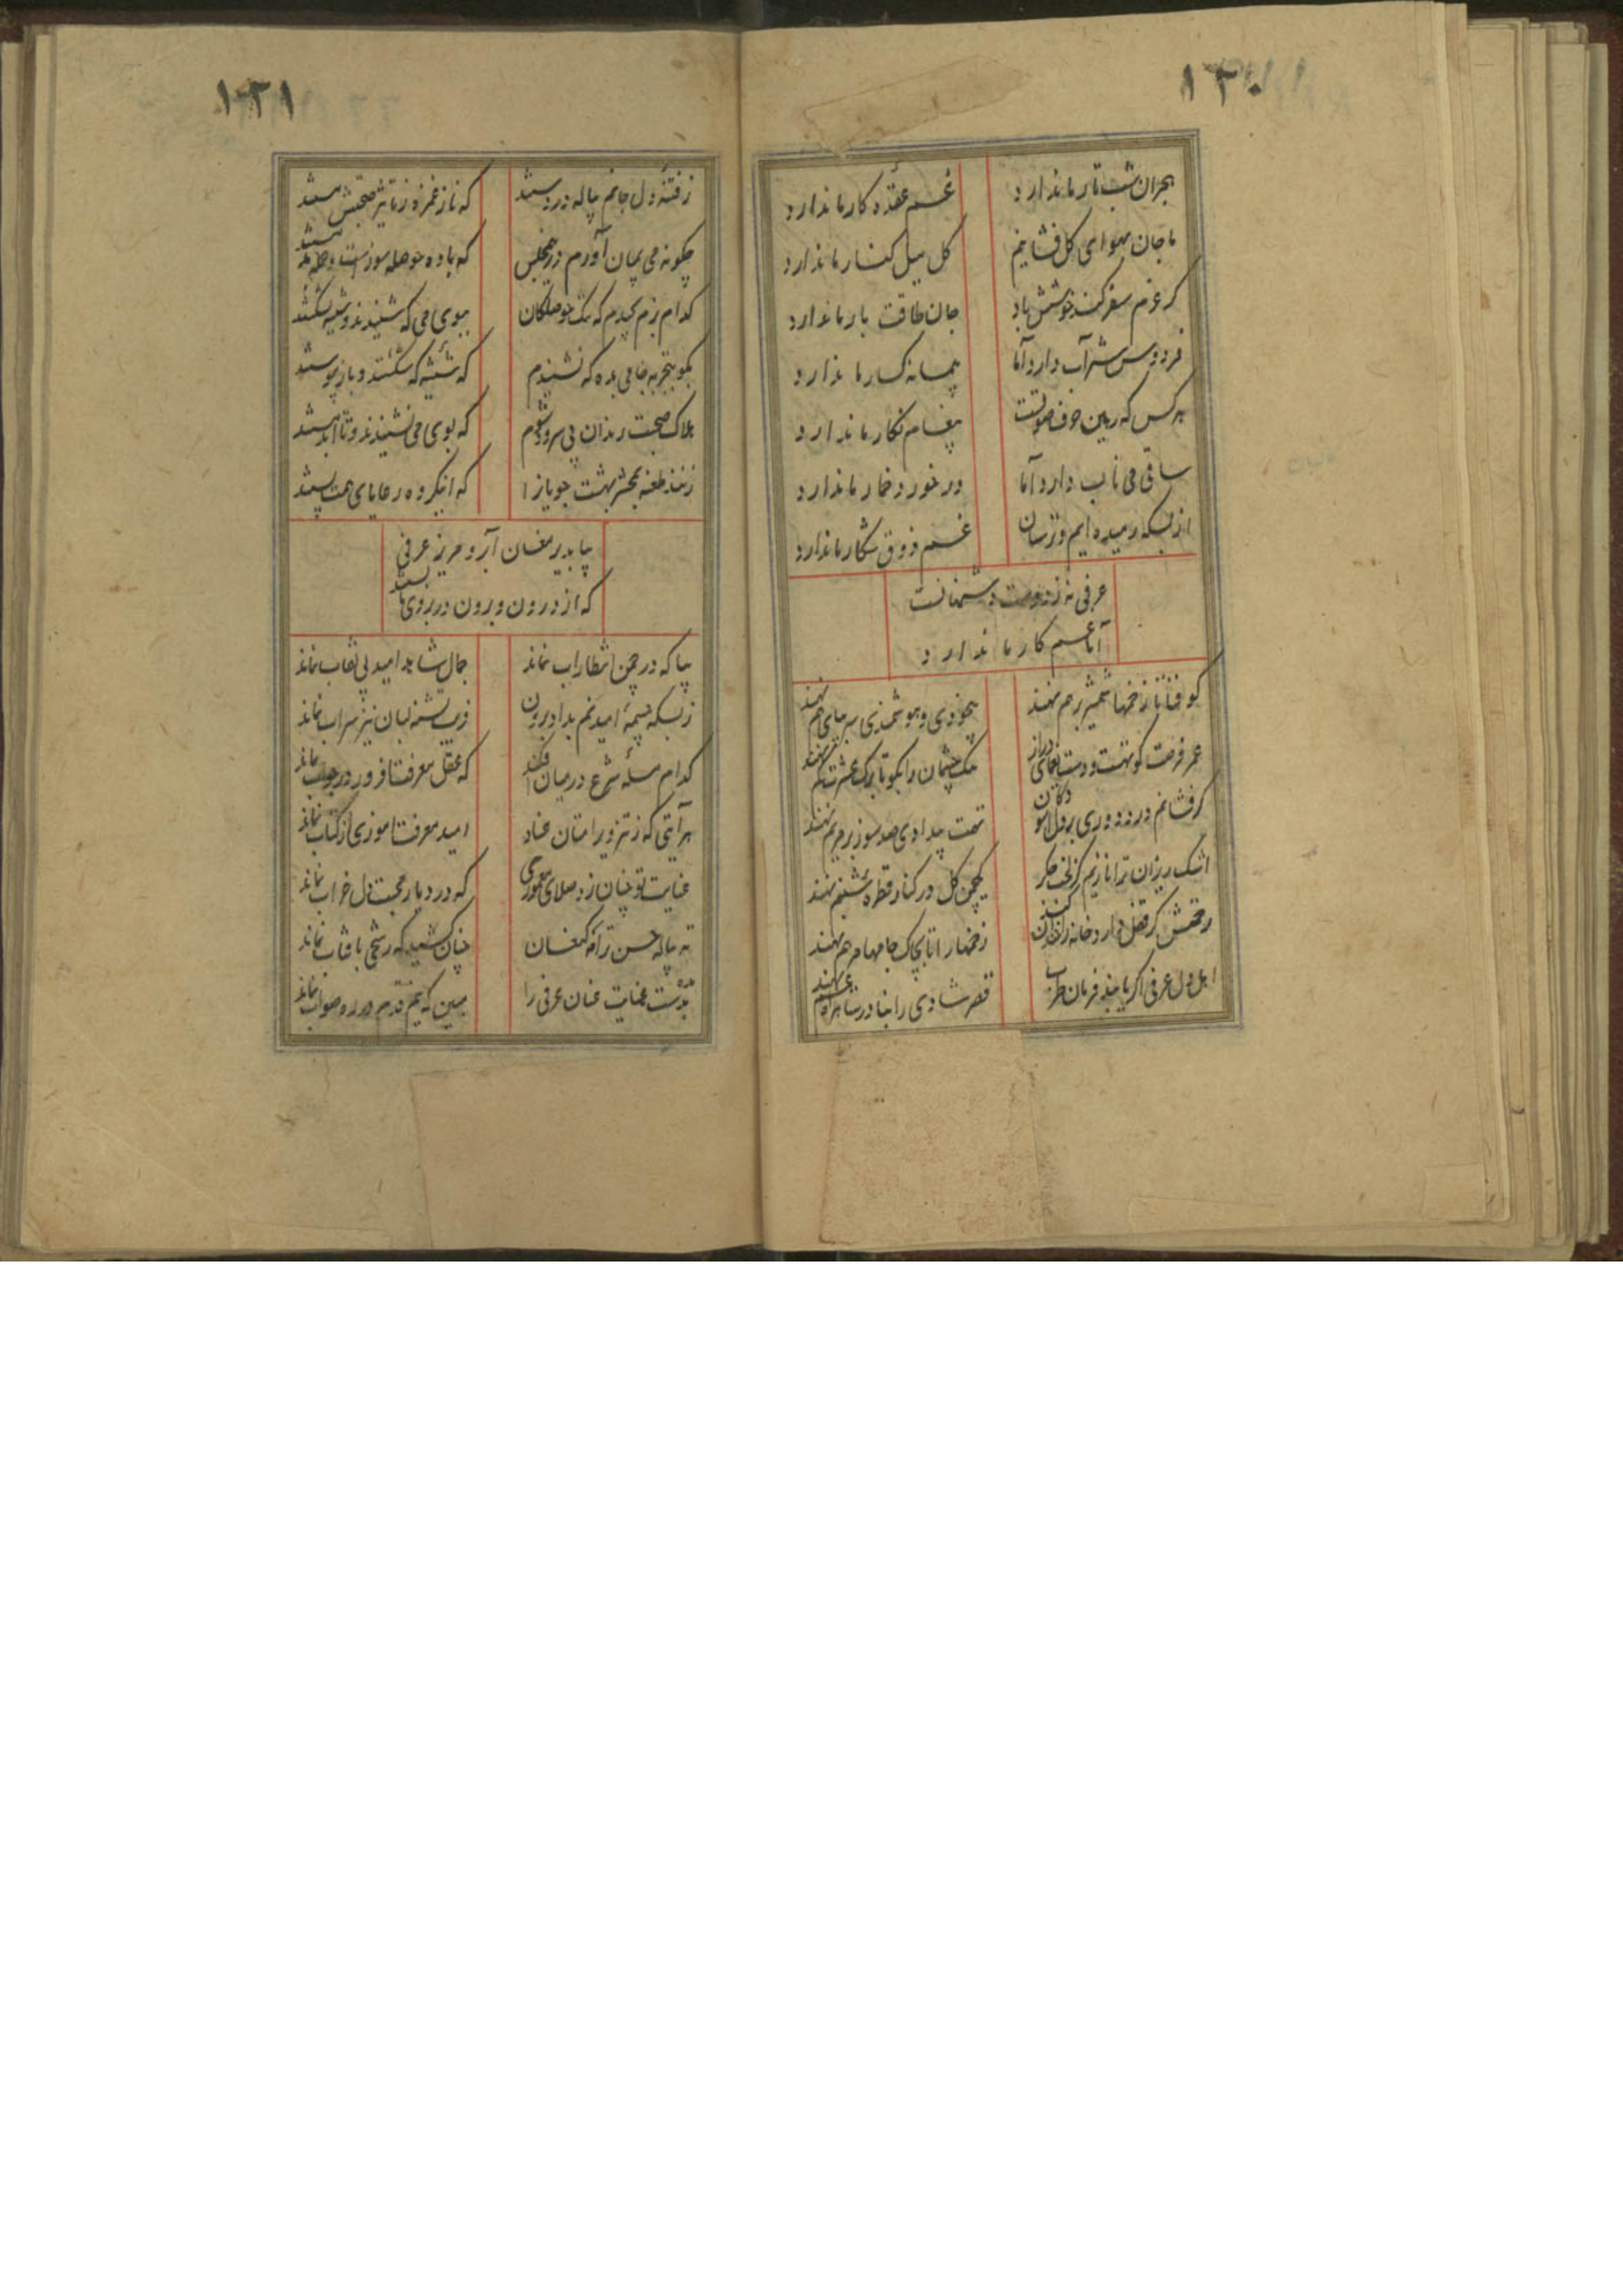 ۱۲۰
هجران شب تار ما ندارد
غم عقده کار ما ندارد
ما جان بهوای گل فشانیم
گل میل کنار ما ندارد
کر عزم سفر کند خوشش باد
جان طاقت بار ما ندارد
فردوس شراب دارد اما
پیمانه کسار ما ندارد
هر کس که رهین حرف صوتست
پیغام نگار ما ندارد
ساقی می ناب دارد اما
در خورد خمار ما ندارد
از بسکه رمیده ایم و ترسان
غم ذوق شکار ما ندارد
عرفی نه ز دوست دشمنانست
اما غم کار ما ندارد
کو فنا تا زخمها شمشیر بر هم نهند
بیخودی و هوشمندی سر بپای هم نهند
عمر فرصت کوتهست و دست یغمای دراز
چشمان را بکو تا برک عشرت کم نهند
کر فشانم درد دوری بر دل
تهمت بیدادی صد سوز بر مریم نهند
اشک ریزان ترا نازیم کز لخت جگر
یکچمن گل در کنار قطره شبنم نهند
رحمتش کر قفل دارد خانه را
زخمها را تا بچاک جامها مرهم نهند
اهل دل عرفی اگر یابند فرمان طرب
قصر شادی را بنا در شاهراه غم نهند
۱۲۱
ز فتنه دل جانم پیاله در دستند
که ناز غمزه ز تاثیر صحبتش مستند
چگونه می بمیان آورم در مجلس
که باده حوصله سوزست و
کدام بزم کجیدم که تنک حوصلگان
ببوی می که شنیدند و شیشه شکستند
بکو بتجربه جامی بده که نشنیدم
که شیشه که شکستند و باز پیوستند
هلاک صحبت رندان بی سروشوم
که بوی می نشنیدند و تا ابد مستند
زنند طعنه بمحشر بهشت جویانرا
که اینکروه رعایای همت پستند
بیا بدیر مغان آبرو مریز عرفی
که از درون و برون در بروی ما بستند
بیا که در چمن انتظار آب نماند
جمال شاهد امید بی نقاب نماند
ز بسکه چشمه امید نم بداد برون
فریب تشنه لبان نیز سراب نماند
کدام مسئله شرع در میان افکند
که عقل معرفت افزور در جواب نماند
هر آیتی که ز تزویر امتان عناد
امید معرفت اموزی از کتاب نماند
عنایت تو چنان زد صلای معموری
که در دیار محبت دل خراب نماند
ته پیاله حسن ترا مه کنعان
چنان کشید که رشحی بافتاب نماند
بدست عنایت عنان عرفی را
ببین که یم قدم در ره صواب نماند